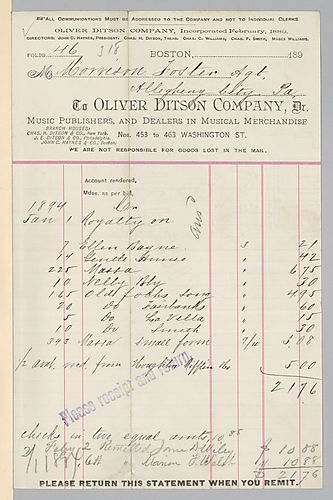 ALL COMMUNICATIONS MUST BE ADDRESSED TO THE COMPANY AND NOT TO INDIVIDUAL CLERKS.
OLIVER DITSON COMPANY, Incorporated February, 1889.
DIRECTORS: JOHN C. HAYNES, PRESIDENT. CHAS. H. DITSON, TREAS. CHAS. C. WILLIAMS, CHAS. F. SMITH, MOSES WILLIAMS.
FOLIO 46 318 BOSTON, 189
M Morrison Foster Agt,
Allegheny City Pa,
To OLIVER DITSON COMPANY, Dr.
MUSIC PUBLISHERS, AND DEALERS IN MUSICAL MERCHANDISE
BRANCH HOUSES:
CHAS. H. DITSON & CO., New York.
J. E. DITSON & CO., Philadelphia.
JOHN C. HAYNES & CO., Boston.
Nos. 453 to 463 WASHINGTON ST.
WE ARE NOT RESPONSIBLE FOR GOODS LOST IN THE MAIL.
Account rendered,
Mdse. as per bill,
1894 Cr
Jan 1 Royalty on
7 Ellen Bayne 3 21
14 Gentle Annie " 42
225 Massa " 675
10 Nelly Bly " 30
165 Old folks song " 495
20 Do Fairbanks " 60
5 Do La Villa " 15
10 Do Smith " 30
343 Massa Small form 9/10 3 08
1/2 amt. rec'd. from Houghton Mifflin Co 5 00
21 76
Please receipt and return.
checks in two equal amts, 10.88
2/1 1894 Feby 2 Remitted Jane D Wiley $ 10 88
" Marion F Welsh " 10 88
$ 21 76
PLEASE RETURN THIS STATEMENT WHEN YOU REMIT.